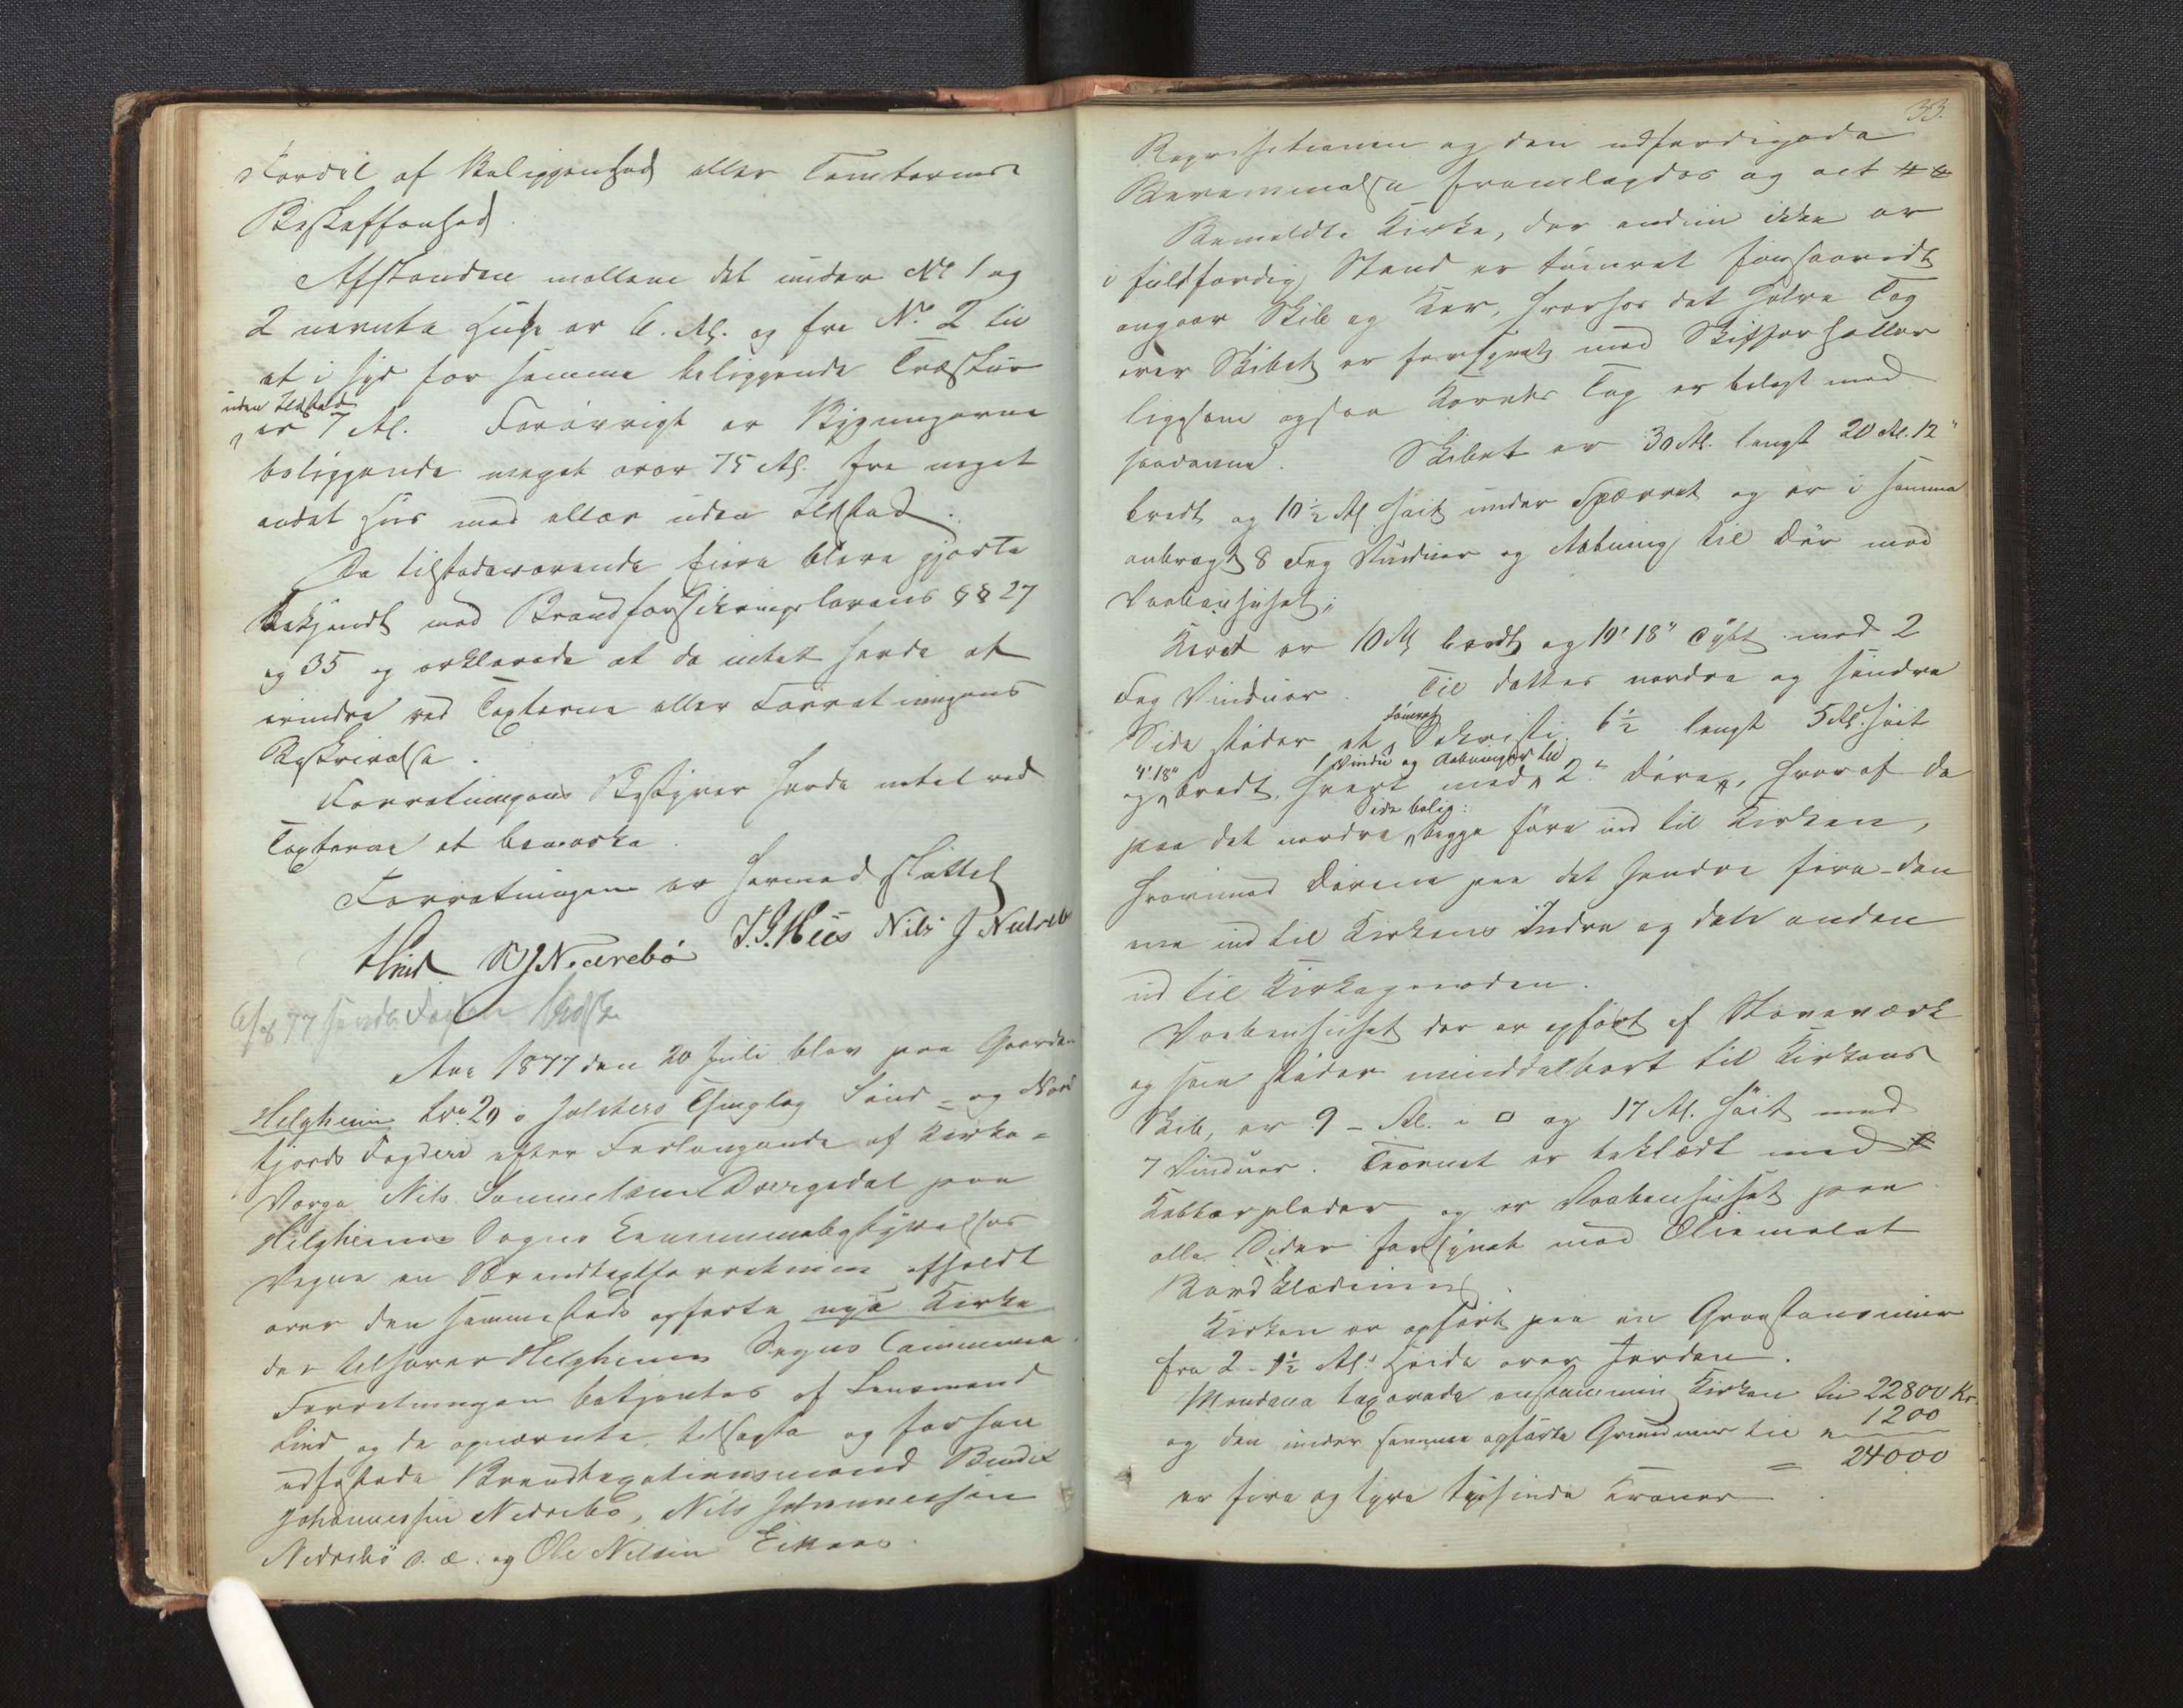 Fordel af Beliggenhed eller Tomternes
Beskaffenhed.
Afstanden mellem det under No 1 og
2 nævnte Huse er 6. Al. og fra No. 2 til
et i Syd for samme beliggende Træskur
uden Ildsted
er 7 Al. Forøvrigt er Bygningerne
beliggende meget over 75 Al. fra noget
andet Huus med eller uden Ildsted.
De tilstedeværende Eiere bleve gjorte
bekjendt med Brandforsikringslovens §§ 27
og 35 og erklærede at de intet havde at
erindre ved Taxterne eller Forretningens
Beskrivelse.
Forretningens Bestyrer havde intet ved
Taxterne at bemærke.
Forretningen er hermed sluttet
Lind B J Nedrebö J. J. Huus Nils J Nedrebö
6/8 77 sendt Fogden Udskr.
Aar 1877 den 20 Juli blev paa Gaarden
Helgheim Lno. 29 i Jølsters Thinglag Sönd- og Nord
fjords Fogderi efter Forlangende af Kirke-
Værge Nils Samuelsen Dvergsdal paa
Helgheims Sogns Kommunebestyrelses
Vegne en Brandtaxtforretning afholdt
over den sammesteds opførte nye Kirke
der tilhører Helgheims Sogns Commune.
Forretningen betjentes af Lensmand
Lind og de opnævnte, tilsagte og forhen
edfæstede Brandtaxationsmænd Bendix
Johannessen Nedrebö, Nils Johannessen
Nedrebö d. æ. og Ole Nilsen Eikaas.
33.
Reqvisitionen og den udfærdigede
Berammelse fremlagdes og
Bemeldte Kirke, der endnu ikke er
i fuldfærdig Stand er tömret forsaavidt
angaar Skib og Kor, hvorhos det halve Tag
over Skibet er forsynet med Skifferheller
ligesom ogsaa Korets Tag er belagt med
saadanne. Skibet er 30 Al. langt 20 Al. 12"
bredt og 10½ Al höit under Spærret og er i samme
anbragt 8 Fag Vinduer og Aabning til Dör med
Vaabenhuset;
Koret er 10 Al bredt og 10' 18" dybt med 2
Fag Vinduer. Til dettes nordre og söndre
tömret
Side stöder et Sakristi 6½ langt 5 Al. höit
4' 18" 1 Vindu og Aabninger til
og bredt, hvert med 2 Döre, hvoraf de
Side belig:
paa det nordre begge före ind til Kirken,
hvorimod Dörene paa det söndre före den
ene ind til Kirkens Indre og den anden
ud til Kirkegaarden.
Vaabenhuset der er opfört af Staveværk
og som stöder umiddelbart til Kirkens
Skib, er 9 Al. i □ og 17 Al. höit med
7 Vinduer. Taarnet er beklædt med
Kobberplader og er Vaabenhuset paa
alle Sider forsynet med Oliemalet
Bordklædning.
Kirken er opfört paa en Graastensmuur
fra 2 - 1½ Al. Höide over Jorden.
Mændene taxerede enstemmig Kirken til 22800 Kr.
og den under samme opförte Grundmur til " 1200
= 24000
er fire og tyve tusinde Kroner.